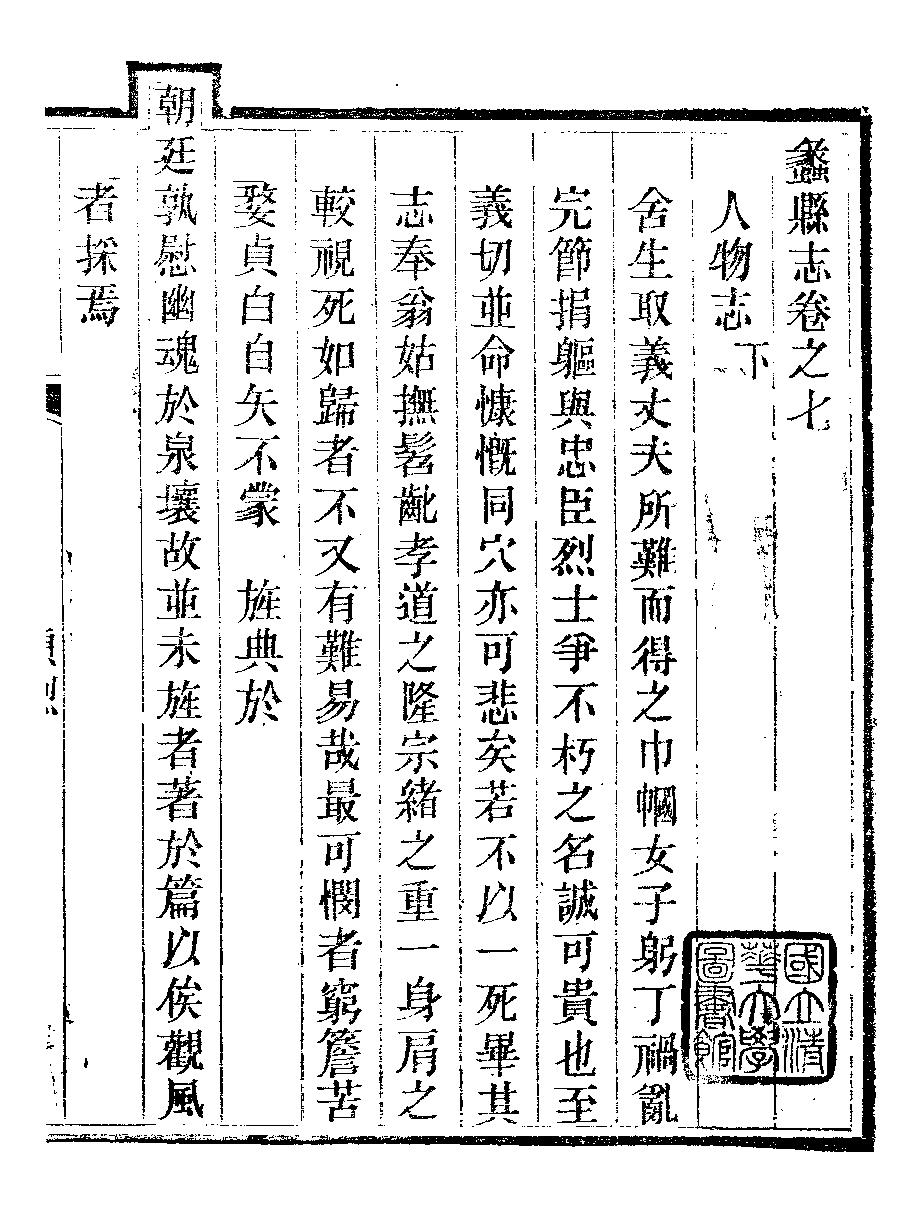 蠡縣志卷之七
人物志下
舍生取義丈夫所難而得之巾幗女子躬丁禍亂
完節捐軀與忠臣烈士爭不朽之名誠可貴也至
義切並命慷慨同穴亦可悲矣若不以一死畢其
志奉翁姑撫髫齔孝道之隆宗緒之重一身肩之
較視死如歸者不又有難易哉最可憫者窮簷苦
婺貞白自矢不蒙 旌典於
朝廷孰慰幽魂於泉壤故並未旌者著於篇以俟觀風
者採焉
國立清華大學圖書館